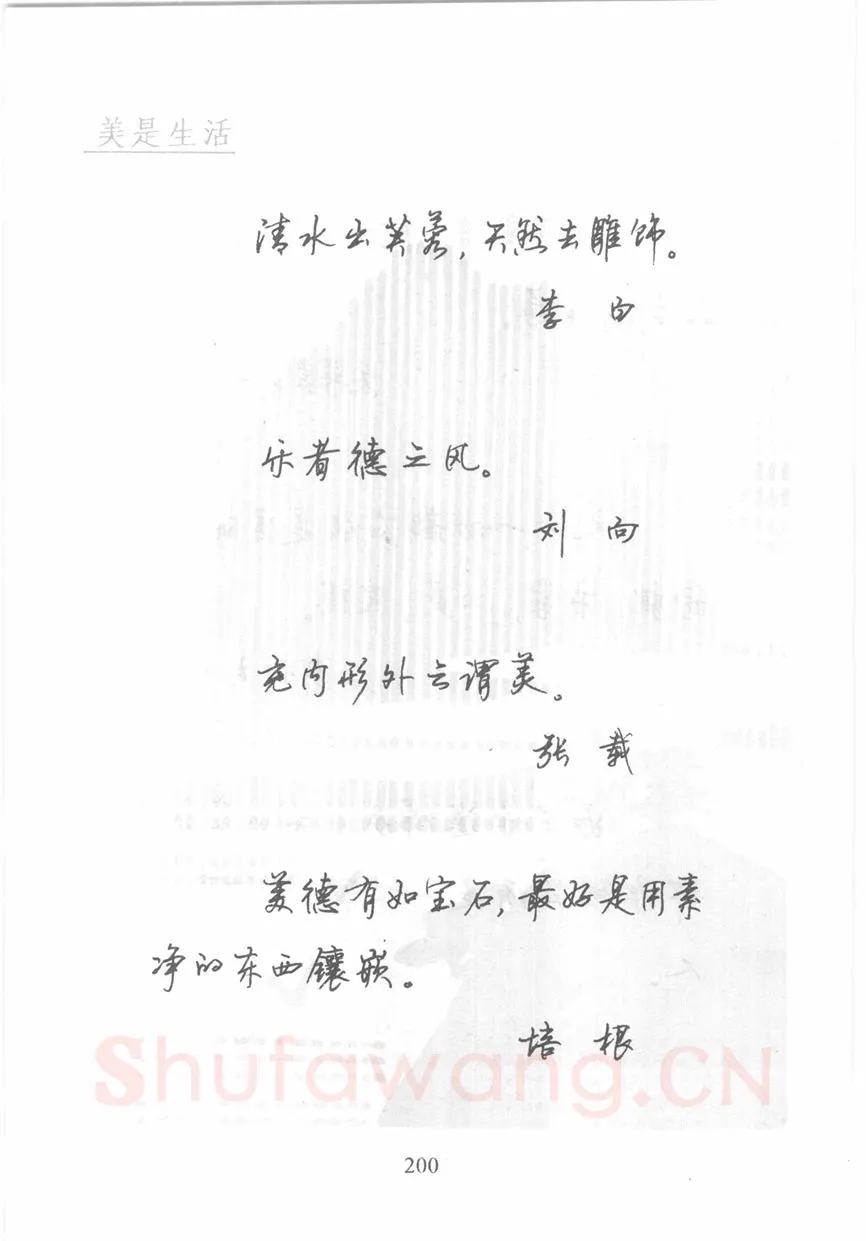 美是生活
清水出芙蓉，天然去雕饰。
李 白
乐者德之风。
刘 向
充内形外之谓美。
张 载
美德有如宝石，最好是用素
净的东西镶嵌。
培 根
Shufawang.CN
200